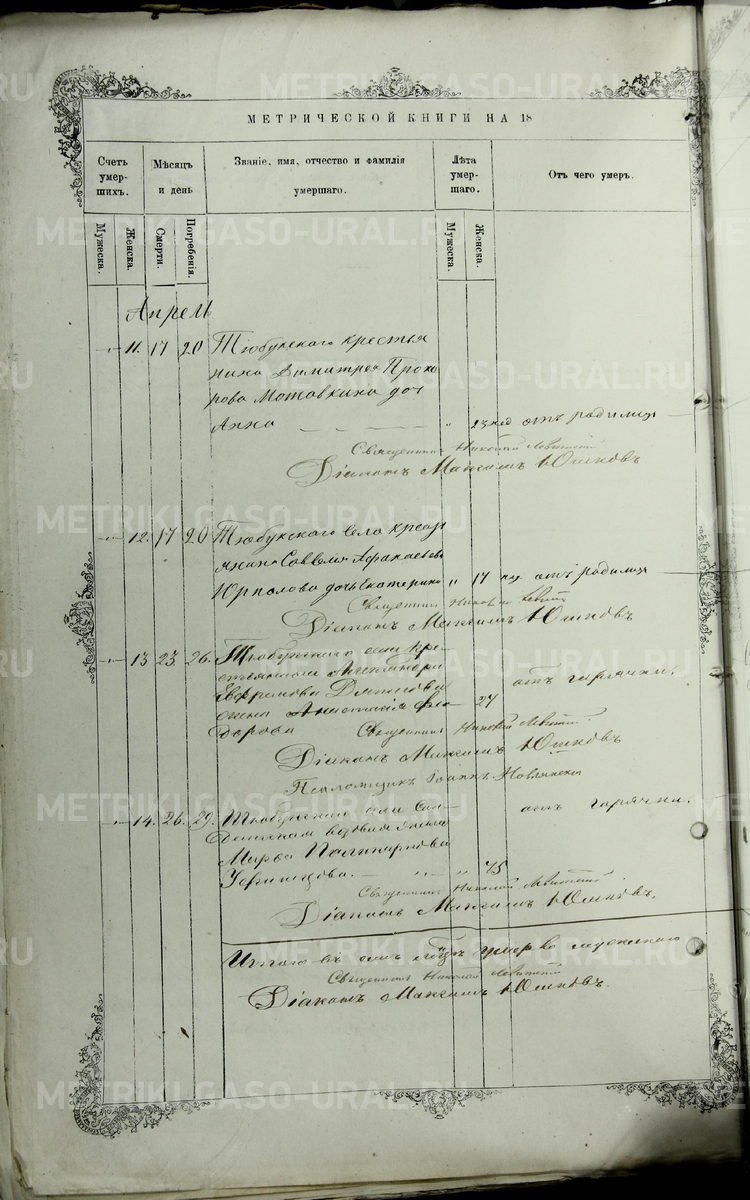 МЕТРИЧЕСКОЙ КНИГИ НА 18
Счетъ умер-шихъ.
Мѣсяцъ и день
Званіе, имя, отчество и фамилія умершаго.
Лѣта умер-шаго.
Отъ чего умеръ.
Мужеска.
Женска.
Смерти.
Погребенія.
Мужеска.
Женска.
Апрель
11. 17 20 Тюбукскаго крестья
нина Димитрея Прохо
рова Мотавкина доч
Анна 23 нед отъ родимца
Священникъ Николай Левитскій
Діаконъ Максимъ Юшковъ
12. 17 20 Тюбукскаго села крестья
нина Савелія
дочь Екатерина 17 отъ родимца
Священникъ Николай
Діаконъ Максимъ Юшковъ
13 23 26. Тюбукскаго села кре-
стьянина Александра
Ефремова
жена Анастасія Фео- 27 отъ горячки.
дорова Священникъ Николай Левитскій
Діаконъ Максимъ Юшковъ
Псаломщикъ Іоаннъ
14. 26. 29. Тюбукскаго села Сол-
датская вдовая
Марѳа 
75 отъ горячки.
Священникъ Николай Левитскій
Діаконъ Максимъ Юшковъ.
Итого въ умерло мужескаго
Священникъ Николай Левитскій
Діаконъ Максимъ Юшковъ.
METRIKI.GASO-URAL.RU